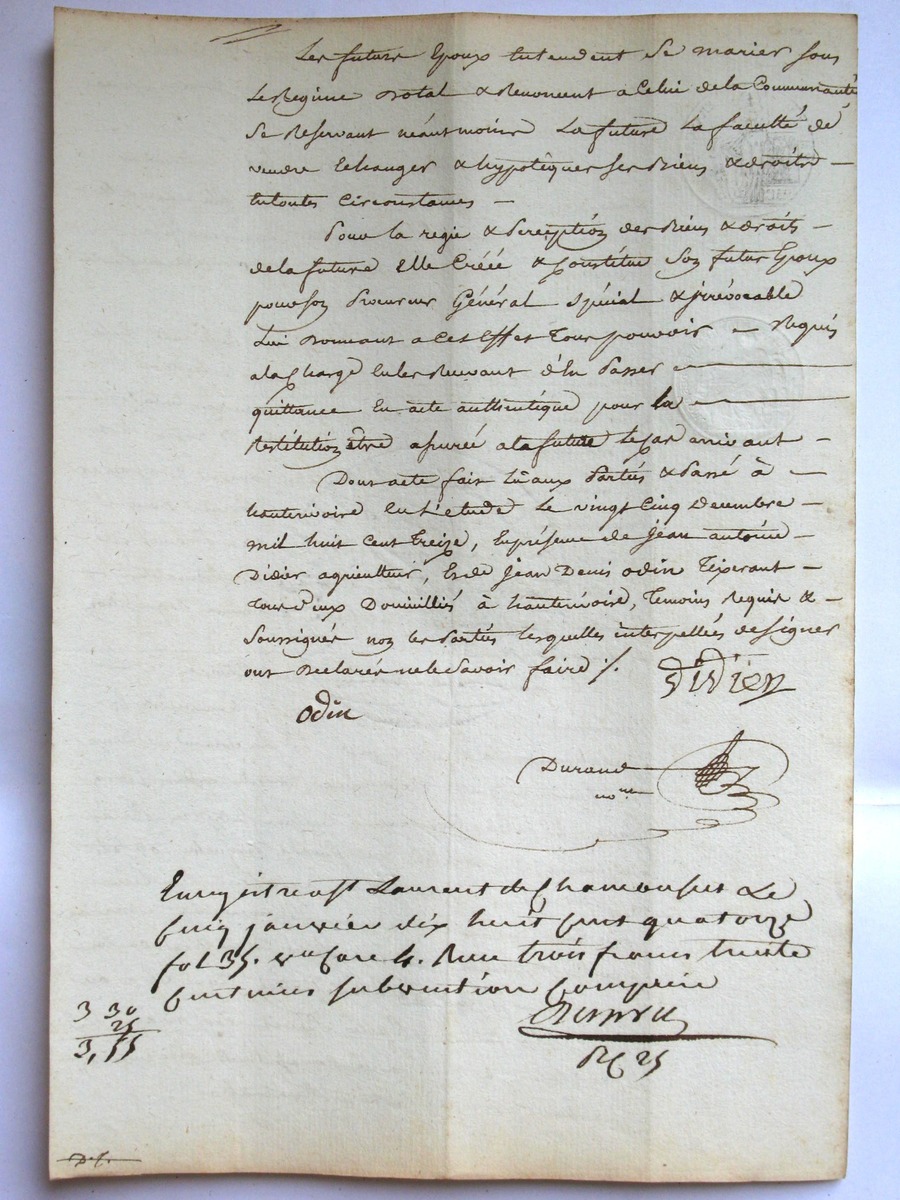 Les futurs Epoux Entendent Se marier sous
Le Regime Dotal & Renoncent a Celui de la Communauté
Se Reservant néantmoins La future La faculté de
vendre Echanger & hypotéquer ses Biens & droits —
En toutes Circonstances —
Pour la regie & perception des Biens & droits —
de la future Elle Créée & Constitue Son futur Epoux
pour son Procureur Général spécial & irrévocable
Lui Donnant a Cet Effet Tous pouvoir — Requis
a la Charge En les Recevant d'En Passer —
quittance En acte authentique pour la —
Restitution être assurée a la future le Cas arrivant —
Dont acte fait Lû aux Parties & Passé à —
hauterivoire En L'étude Le vingt Cinq Decembre —
mil huit Cent treize, En présence de Jean antoine —
Didier agriculteur, Et de Jean Denis odin Tisserant —
Tous Deux Domiciliés à hauterivoire, Temoins Requis &
Soussignés non les Parties lesquelles interpellées de signer
ont Declarés ne le Savoir faire ./.
Didier
odin
Durand
no.re
Enregistré a St Laurent de Chamousset Le
Cinq janvier dix huit cent quatorze
fol 35. v.o Case 4. Reçu trois francs trente
Centimes subvention Comprise
3 30
25
3,55
25